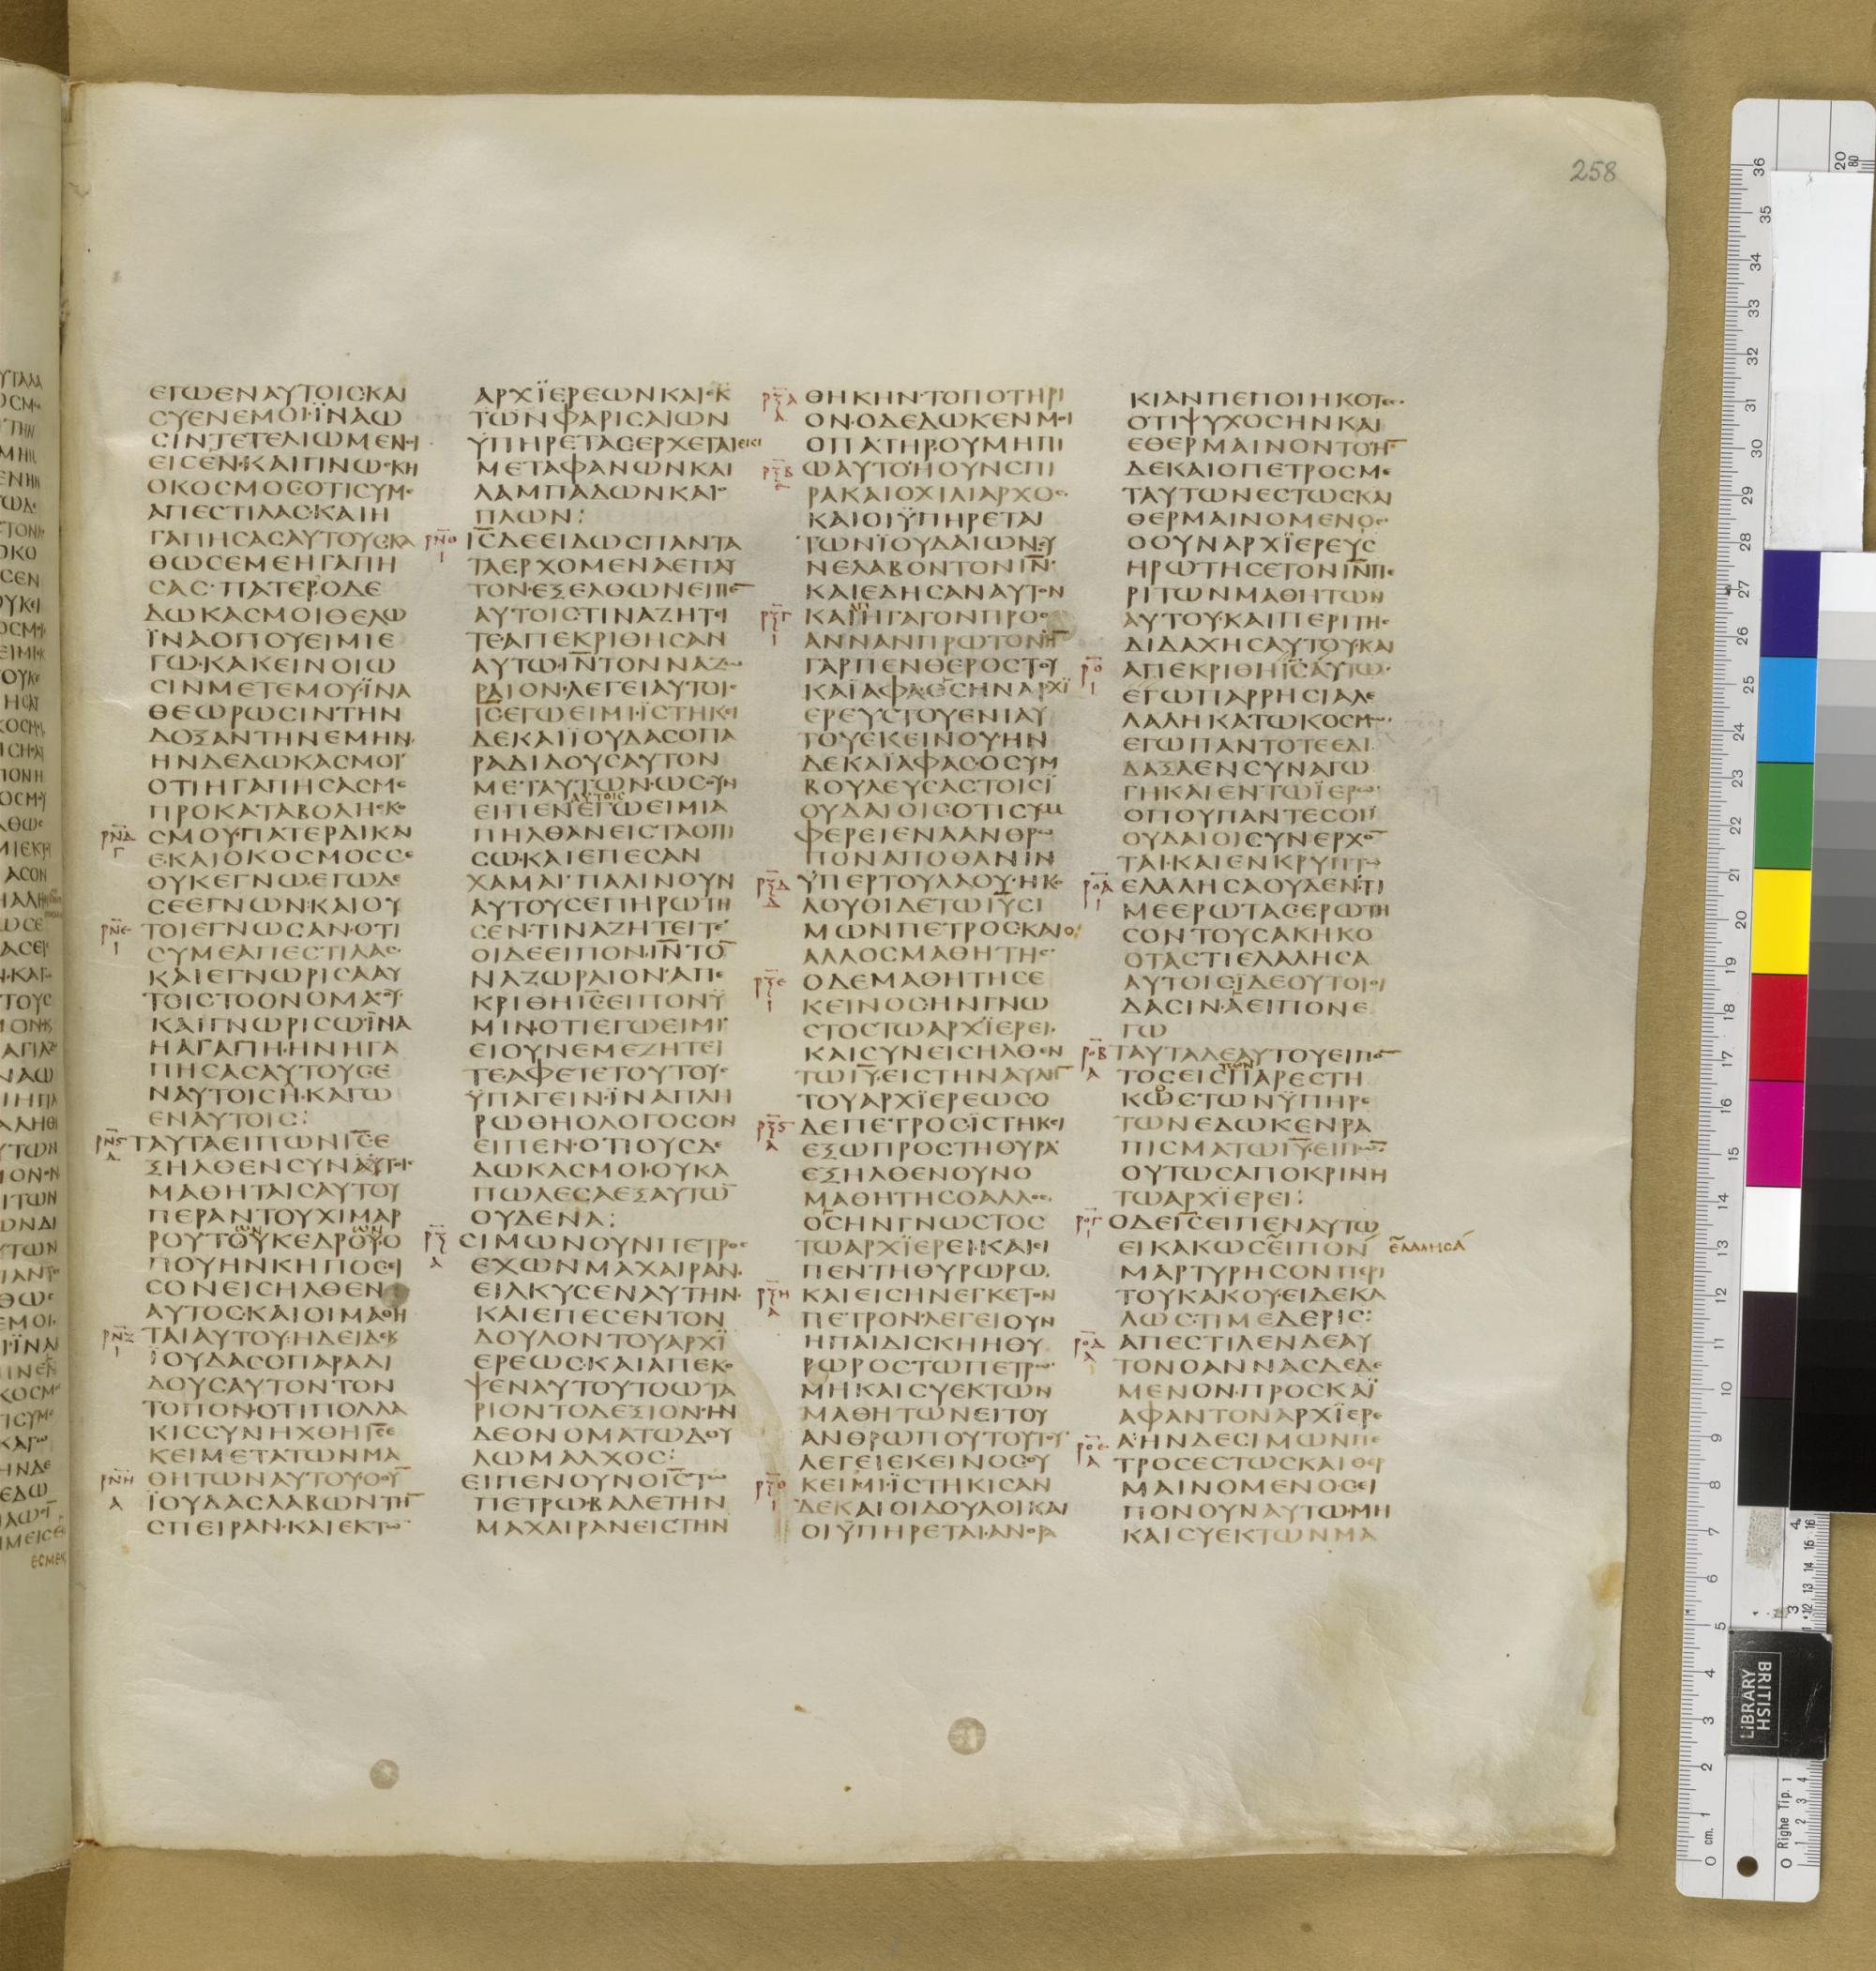 258
ΕΓΩΕΝΑΥΤΟΙΣΚΑΙ
ΣΥΕΝΕΜΟΙ·ΪΝΑΩ
ΣΙΝΤΕΤΕΛΙΩΜΕΝΟΙ
ΕΙΣΕΝ·ΚΑΙΓΙΝΩΣΚΗ
ΟΚΟΣΜΟΣΟΤΙΣΥΜΕ
ΑΠΕΣΤΙΛΑΣ·ΚΑΙΗ
ΓΑΠΗΣΑΣΑΥΤΟΥΣΚΑ
ΘΩΣΕΜΕΗΓΑΠΗ
ΣΑΣ·ΠΑΤΕΡ·ΟΔΕ
ΔΩΚΑΣΜΟΙΘΕΛΩ
ΪΝΑΟΠΟΥΕΙΜΙΕ
ΓΩ·ΚΑΚΕΙΝΟΙΩ
ΣΙΝΜΕΤΕΜΟΥ·ΪΝΑ
ΘΕΩΡΩΣΙΝΤΗΝ
ΔΟΞΑΝΤΗΝΕΜΗΝ
ΗΝΔΕΔΩΚΑΣΜΟΙ
ΟΤΙΗΓΑΠΗΣΑΣΜΕ
ΠΡΟΚΑΤΑΒΟΛΗΣΚΟ
ΡΝΔ Γ ΣΜΟΥ·ΠΑΤΕΡΔΙΚΑΙ
Ε·ΚΑΙΟΚΟΣΜΟΣΣΕ
ΟΥΚΕΓΝΩ·ΕΓΩΔΕ
ΣΕΕΓΝΩΝ·ΚΑΙΟΥ
ΡΝΕ Ι ΤΟΙΕΓΝΩΣΑΝ·ΟΤΙ
ΣΥΜΕΑΠΕΣΤΙΛΑΣ·
ΚΑΙΕΓΝΩΡΙΣΑΑΥ
ΤΟΙΣΤΟΟΝΟΜΑΣΟΥ·
ΚΑΙΓΝΩΡΙΣΩ·ΪΝΑ
ΗΑΓΑΠΗ·ΗΝΗΓΑ
ΠΗΣΑΣΑΥΤΟΥΣΕ
ΝΑΥΤΟΙΣΗ·ΚΑΓΩ
ΕΝΑΥΤΟΙΣ:
ΡΝϚ Α ΤΑΥΤΑΕΙΠΩΝΙΣΕ
ΞΗΛΘΕΝΣΥΝΑΥΤΟΙΣ
ΜΑΘΗΤΑΙΣΑΥΤΟΥ
ΠΕΡΑΝΤΟΥΧΙΜΑΡ
ΡΟΥΤΟΥΚΕΔΡΟΥ·Ο
ΠΟΥΗΝΚΗΠΟΣΕΙ
ΣΟΝΕΙΣΗΛΘΕΝ
ΑΥΤΟΣ·ΚΑΙΟΙΜΑΘΗ
ΡΝΖ Ι ΤΑΙΑΥΤΟΥ·ΗΔΕΙΔΕΚ
ΪΟΥΔΑΣΟΠΑΡΑΔΙ
ΔΟΥΣΑΥΤΟΝΤΟΝ
ΤΟΠΟΝ·ΟΤΙΠΟΛΛΑ
ΚΙΣΣΥΝΗΧΘΗΙΣΕ
ΚΕΙΜΕΤΑΤΩΝΜΑ
ΡΝΗ Α ΘΗΤΩΝΑΥΤΟΥ·ΟΟΥ
ΪΟΥΔΑΣΛΑΒΩΝΤΗ
ΣΠΕΙΡΑΝ·ΚΑΙΕΚΤΩ
ΑΡΧΪΕΡΕΩΝΚΑΙΕΚ
ΤΩΝΦΑΡΙΣΑΙΩΝ
ΫΠΗΡΕΤΑΣΕΡΧΕΤΑΙΕΚΕΙ
ΜΕΤΑΦΑΝΩΝΚΑΙ
ΛΑΜΠΑΔΩΝΚΑΙΟ
ΠΛΩΝ:
ΡΝΘ Ι ΙΣΔΕΕΙΔΩΣΠΑΝΤΑ
ΤΑΕΡΧΟΜΕΝΑΕΠΑΥ
ΤΟΝ·ΕΞΕΛΘΩΝΕΙΠΕ
ΑΥΤΟΙΣ·ΤΙΝΑΖΗΤΕΙ
ΤΕΑΠΕΚΡΙΘΗΣΑΝ
ΑΥΤΩ·ΙΝΤΟΝΝΑΖΩ
ΡΑΙΟΝ·ΛΕΓΕΙΑΥΤΟΙΣ
ΙΣΕΓΩΕΙΜΙ·ΪΣΤΗΚΕΙ
ΔΕΚΑΙΪΟΥΔΑΣΟΠΑ
ΡΑΔΙΔΟΥΣΑΥΤΟΝ
ΜΕΤΑΥΤΩΝ·ΩΣΟΥΝ
ΑΥΤΟΙΣ
ΕΙΠΕΝΕΓΩΕΙΜΙΑ
ΠΗΛΘΑΝΕΙΣΤΑΟΠΙ
ΣΩ·ΚΑΙΕΠΕΣΑΝ
ΧΑΜΑΙ·ΠΑΛΙΝΟΥΝ
ΑΥΤΟΥΣΕΠΗΡΩΤΗ
ΣΕΝ·ΤΙΝΑΖΗΤΕΙΤΕ
ΟΙΔΕΕΙΠΟΝ·ΙΝΤΟ
ΝΑΖΩΡΑΙΟΝ·ΑΠΕ
ΚΡΙΘΗΙΣ·ΕΙΠΟΝΫ
ΜΙΝ·ΟΤΙΕΓΩΕΙΜΙ
ΕΙΟΥΝΕΜΕΖΗΤΕΙ
ΤΕΑΦΕΤΕΤΟΥΤΟΥΣ
ΫΠΑΓΕΙΝ·ΪΝΑΠΛΗ
ΡΩΘΗΟΛΟΓΟΣΟΝ
ΕΙΠΕΝ·ΟΤΙΟΥΣΔΕ
ΔΩΚΑΣΜΟΙ·ΟΥΚΑ
ΠΩΛΕΣΑΕΞΑΥΤΩ
ΟΥΔΕΝΑ:
ΡΞ Α ΣΙΜΩΝΟΥΝΠΕΤΡΟΣ
ΕΧΩΝΜΑΧΑΙΡΑΝ·
ΕΙΛΚΥΣΕΝΑΥΤΗΝ·
ΚΑΙΕΠΕΣΕΝΤΟΝ
ΔΟΥΛΟΝΤΟΥΑΡΧΪ
ΕΡΕΩΣ·ΚΑΙΑΠΕΚΟ
ΨΕΝΑΥΤΟΥΤΟΩΤΑ
ΡΙΟΝΤΟΔΕΞΙΟΝ·ΗΝ
ΔΕΟΝΟΜΑΤΩΔΟΥ
ΛΩΜΑΛΧΟΣ:
ΕΙΠΕΝΟΥΝΟΙΣΤΩ
ΠΕΤΡΩ·ΒΑΛΕΤΗΝ
ΜΑΧΑΙΡΑΝΕΙΣΤΗΝ
ΡΞΑ Α ΘΗΚΗΝ·ΤΟΠΟΤΗΡΙ
ΟΝ·ΟΔΕΔΩΚΕΝΜΟΙ
ΟΠΑΤΗΡ·ΟΥΜΗΠΙ
ΡΞΒ ΩΑΥΤΟ·ΗΟΥΝΣΠΙ
ΡΑΚΑΙΟΧΙΛΙΑΡΧΟΣ·
ΚΑΙΟΙΫΠΗΡΕΤΑΙ
ΤΩΝΪΟΥΔΑΙΩΝΣΥ
ΝΕΛΑΒΟΝΤΟΝΙΝ·
ΚΑΙΕΔΗΣΑΝΑΥΤΟΝ
ΡΞΓ Ι ΚΑΙΗΓΑΓΟΝΠΡΟΣ
ΑΝΝΑΝΠΡΩΤΟΝΗ
ΓΑΡΠΕΝΘΕΡΟΣΤΟΥ
ΚΑΪΑΦΑ·ΟΣΗΝΑΡΧΪ
ΕΡΕΥΣΤΟΥΕΝΙΑΥ
ΤΟΥΕΚΕΙΝΟΥ·ΗΝ
ΔΕΚΑΪΑΦΑΣ·ΟΣΥΜ
ΒΟΥΛΕΥΣΑΣΤΟΙΣΪ
ΟΥΔΑΙΟΙΣ·ΟΤΙΣΥΜ
ΦΕΡΕΙΕΝΑΑΝΘΡΩ
ΠΟΝΑΠΟΘΑΝΙΝ
ΡΞΔ Δ ΫΠΕΡΤΟΥΛΑΟΥ·ΗΚΟ
ΛΟΥΟΙΔΕΤΩΙΥΣΙ
ΜΩΝΠΕΤΡΟΣ·ΚΑΙΟ
ΑΛΛΟΣΜΑΘΗΤΗΣ·
ΡΞΕ Ι ΟΔΕΜΑΘΗΤΗΣΕ
ΚΕΙΝΟΣ·ΗΝΓΝΩ
ΣΤΟΣΤΩΑΡΧΪΕΡΕΙ·
ΚΑΙΣΥΝΕΙΣΗΛΘΕΝ
ΤΩΙΥ·ΕΙΣΤΗΝΑΥΛΗ
ΤΟΥΑΡΧΪΕΡΕΩΣΟ
ΡΞϚ Α ΔΕΠΕΤΡΟΣΪΣΤΗΚΕΙ
ΕΞΩΠΡΟΣΤΗΘΥΡΑ
ΕΞΗΛΘΕΝΟΥΝΟ
ΜΑΘΗΤΗΣΟΑΛΛΟΣ·
ΟΣΗΝΓΝΩΣΤΟΣ
ΤΩΑΡΧΪΕΡΕΙ·ΚΑΙΕΙ
ΠΕΝΤΗΘΥΡΩΡΩ·
ΡΞΗ Α ΚΑΙΕΙΣΗΝΕΓΚΕΤΟΝ
ΠΕΤΡΟΝ·ΛΕΓΕΙΟΥΝ
ΗΠΑΙΔΙΣΚΗΗΘΥ
ΡΩΡΟΣΤΩΠΕΤΡΩ·
ΜΗΚΑΙΣΥΕΚΤΩΝ
ΜΑΘΗΤΩΝΕΙΤΟΥ
ΑΝΘΡΩΠΟΥΤΟΥΤΟΥ·
ΛΕΓΕΙΕΚΕΙΝΟΣΟΥ
ΡΞΘ Ι ΚΕΙΜΙ·ΪΣΤΗΚΙΣΑΝ
ΔΕΚΑΙΟΙΔΟΥΛΟΙΚΑΙ
ΟΙΫΠΗΡΕΤΑΙ·ΑΝΘΡΑ
ΚΙΑΝΠΕΠΟΙΗΚΟΤΕΣ·
ΟΤΙΨΥΧΟΣΗΝΚΑΙ
ΕΘΕΡΜΑΙΝΟΝΤΟ·Η
ΔΕΚΑΙΟΠΕΤΡΟΣΜΕ
ΤΑΥΤΩΝΕΣΤΩΣΚΑΙ
ΘΕΡΜΑΙΝΟΜΕΝΟΣ·
ΟΟΥΝΑΡΧΪΕΡΕΥΣ
ΗΡΩΤΗΣΕΤΟΝΙΝΠΕ
ΡΙΤΩΝΜΑΘΗΤΩΝ
ΑΥΤΟΥ·ΚΑΙΠΕΡΙΤΗΣ
ΔΙΔΑΧΗΣΑΥΤΟΥ·ΚΑΙ
ΡΟ Ι ΑΠΕΚΡΙΘΗΙΣΑΥΤΩ·
ΕΓΩΠΑΡΡΗΣΙΑΛΕ
ΛΑΛΗΚΑΤΩΚΟΣΜΩ·
ΕΓΩΠΑΝΤΟΤΕΕΔΙ
ΔΑΞΑΕΝΣΥΝΑΓΩ
ΓΗΚΑΙΕΝΤΩΪΕΡΩ·
ΟΠΟΥΠΑΝΤΕΣΟΙΪ
ΟΥΔΑΙΟΙΣΥΝΕΡΧΟ
ΤΑΙ·ΚΑΙΕΝΚΡΥΠΤΩ
ΡΟΑ Ι ΕΛΑΛΗΣΑΟΥΔΕΝ·ΤΙ
ΜΕΕΡΩΤΑΣ·ΕΡΩΤΗ
ΣΟΝΤΟΥΣΑΚΗΚΟ
ΟΤΑΣΤΙΕΛΑΛΗΣΑ
ΑΥΤΟΙΣ·ΪΔΕΟΥΤΟΙΟΙ
ΔΑΣΙΝ·ΑΕΙΠΟΝΕ
ΓΩ
ΡΟΒ Α ΤΑΥΤΑΔΕΑΥΤΟΥΕΙΠΟ
ΤΟΣΕΙΣΠΑΡΕΣΤΗ
ΚΩΣΤΩΝΫΠΗΡΕ
ΤΩΝΕΔΩΚΕΝΡΑ
ΠΙΣΜΑΤΩΙΥ·ΕΙΠΩ·
ΟΥΤΩΣΑΠΟΚΡΙΝΗ
ΤΩΑΡΧΪΕΡΕΙ:
ΡΟΓ Ι ΟΔΕΙΣΕΙΠΕΝΑΥΤΩ
ΕΙΚΑΚΩΣΕΙΠΟΝ ΕΛΑΛΗΣΑ
ΜΑΡΤΥΡΗΣΟΝΠΕΡΙ
ΤΟΥΚΑΚΟΥ·ΕΙΔΕΚΑ
ΛΩΣ·ΤΙΜΕΔΕΡΙΣ:
ΡΟΔ Α ΑΠΕΣΤΙΛΕΝΔΕΑΥ
ΤΟΝΟΑΝΝΑΣΔΕΔΕ
ΜΕΝΟΝ·ΠΡΟΣΚΑΪ
ΑΦΑΝΤΟΝΑΡΧΪΕΡΕ
ΡΟΕ Α Α·ΗΝΔΕΣΙΜΩΝΠΕ
ΤΡΟΣΕΣΤΩΣΚΑΙΘΕΡ
ΜΑΙΝΟΜΕΝΟΣΕΙ
ΠΟΝΟΥΝΑΥΤΩ·ΜΗ
ΚΑΙΣΥΕΚΤΩΝΜΑ
BRITISH
LIBRARY